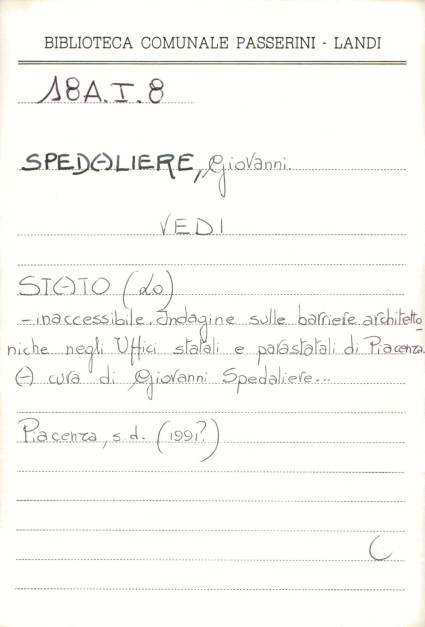 BIBLIOTECA COMUNALE PASSERINI - LANDI
18A.I.8
SPEDALIERE, Giovanni.
VEDI
STATO (Lo)
- inaccessibile. Indagine sulle barriere architetto
niche negli Uffici statali e parastatali di Piacenza.
A cura di Giovanni Spedaliere...
Piacenza, s.d. (1991?)
C